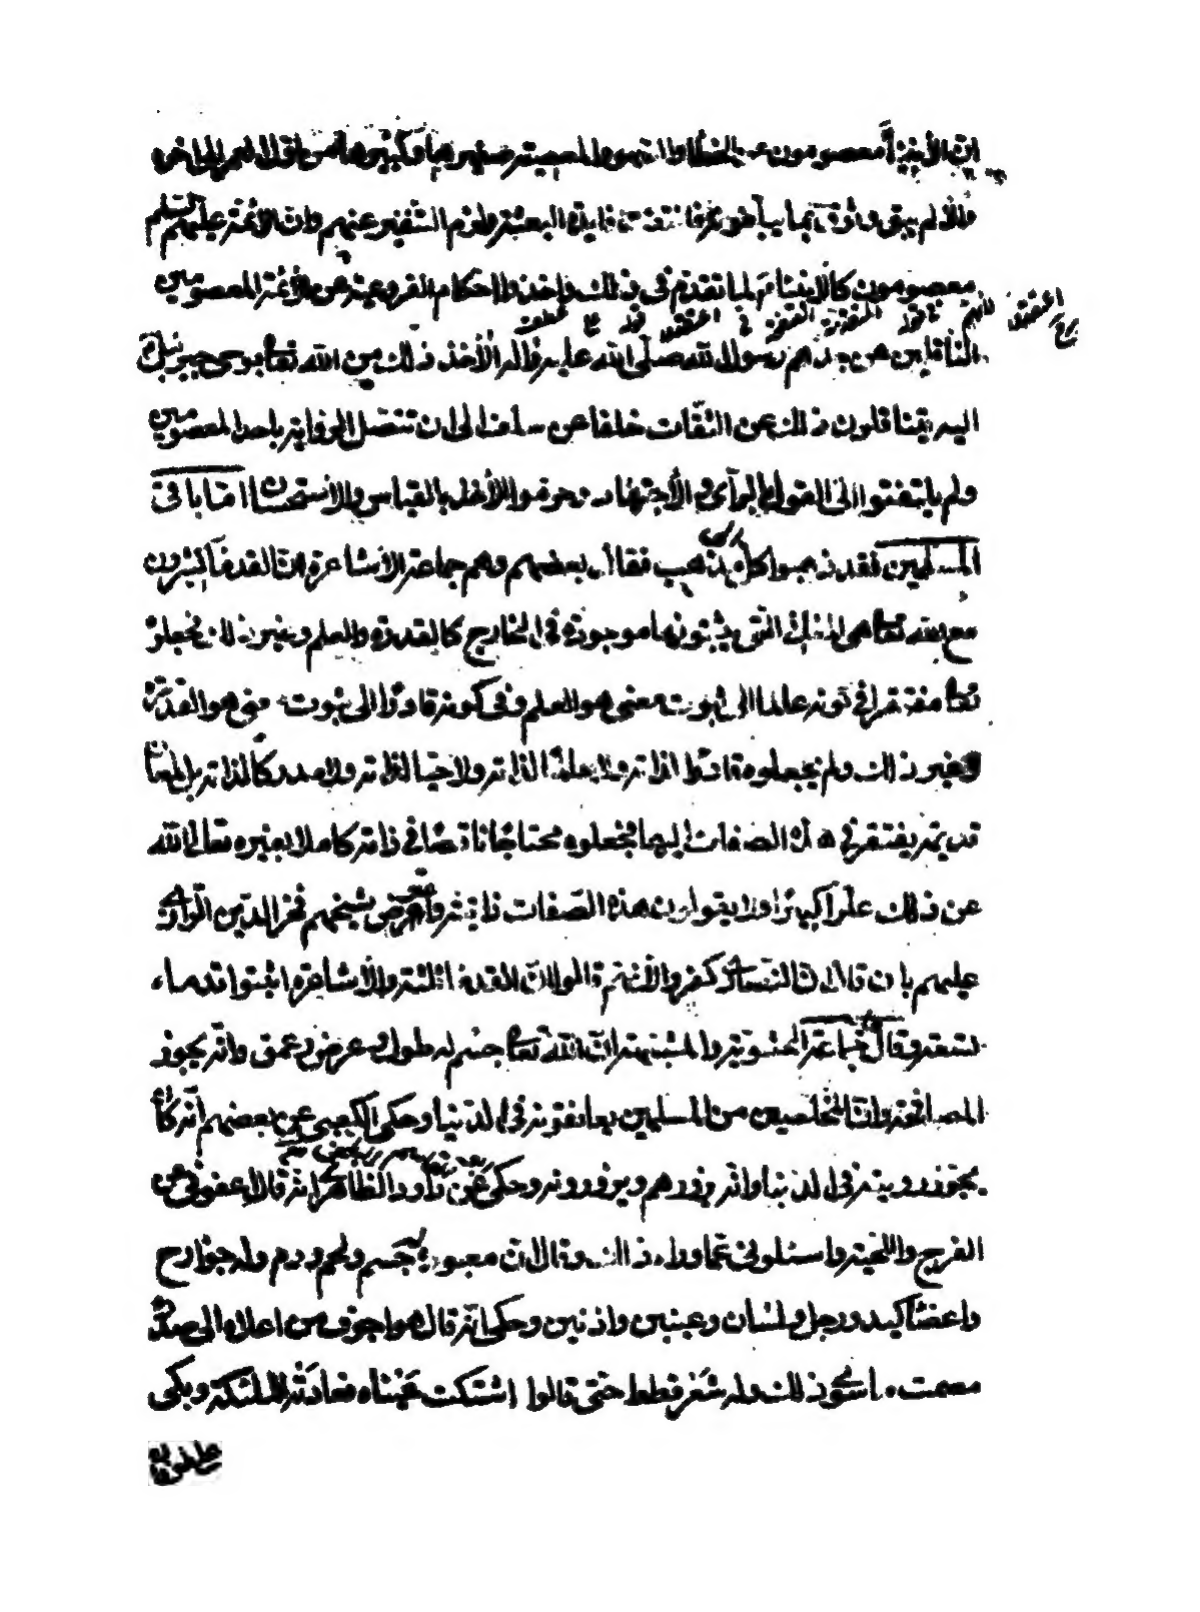 ان الأنبياء معصومون عن الخطأ والسهو والمعصية صغيرها وكبيرها من اول العمر الى اخره
والا لم يبق وثوق بما يبلغونه فانتفت فايدة البعثة ولزم التنفير عنهم وان الائمة عليهم السلم
معصومون كالانبياء لما تقدم في ذلك واخذوا الاحكام الفروعية عن الائمة المعصومين
الناقلين عن جدهم رسول الله صلى الله عليه واله الأخذ ذلك من الله تعا بوحى جبرئيل
اليه يتناقلون ذلك عن الثقات خلفا عن سلف الى ان تتصل الرواية باحد المعصومين
ولم يلتفتوا الى القول بالرأى والأجتهاد وحرموا الأخذ بالقياس والاستحسان اما باقى
المسلمين فقد ذهبوا كل مذهب فقال بعضهم وهم جماعة الاشاعرة ان القدماء كثيرون
مع الله تعا هى المعانى التى يثبتونها موجودة في الخارج كالقدرة والعلم وغير ذلك فجعلوه
تعا مفتقرا في كونه عالما الى ثبوت معنى هو العلم وفى كونه قادرا الى ثبوت معنى هو القدرة
وغير ذلك ولم يجعلوه قادرا لذاته ولا عالما لذاته ولا حيا لذاته ولا مدركا لذاته بل لمعان
قديمة يفتقر في هذه الصفات اليها فجعلوه محتاجا ناقصا في ذاته كاملا بغيره تعالى الله
عن ذلك علوا كبيرا ولا يقولون هذه الصفات ذاتية واعترض شيخهم فخر الدين الرازى
عليهم بان قال ان النصارى كفروا لأنهم قالوا ان القدماء ثلثة والأشاعرة اثبتوا قدماء
تسعة وقال جماعة الحشوية والمشبهة ان الله تعا جسم له طول وعرض وعمق وانه يجوز
المصافحة وان المخلصين من المسلمين يعانقونه في الدنيا وحكى الكعبى عن بعضهم انه كان
يجوز رويته في الدنيا وانه يزورهم ويزورونه وحكى عن داود الظاهرى انه قال اعفونى عن
الفرج واللحية واسئلونى عما وراء ذلك وقال ان معبوده جسم ولحم ودم وله جوارح
واعضاء كيد ورجل ولسان وعينين واذنين وحكى انه قال هو اجوف من اعلاه الى صدره
مصمت ما سوى ذلك وله شعر قطط حتى قالوا اشتكت عيناه فعادته الملئكة وبكى
على طوفان